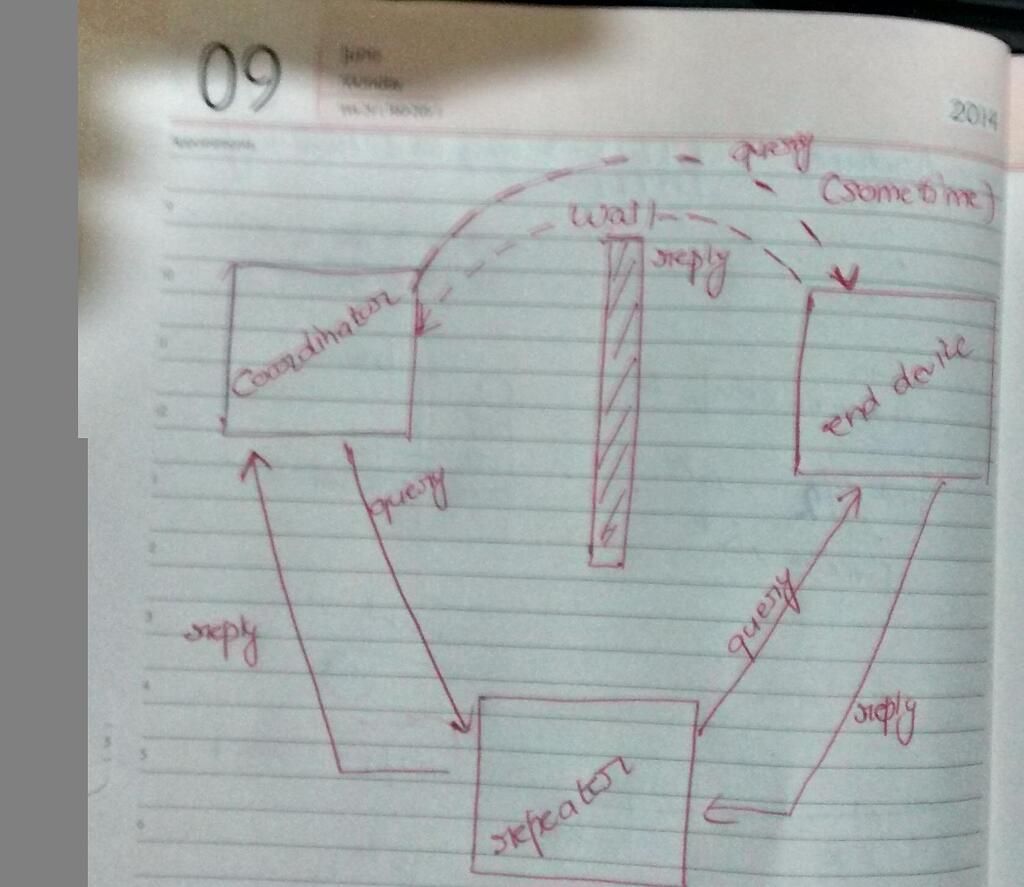 09
June
Monday
2014
Appointments
query
(sometime)
wall
reply
Coordinator
end device
query
reply
query
reply
repeator
9
10
11
12
1
2
3
4
5
6